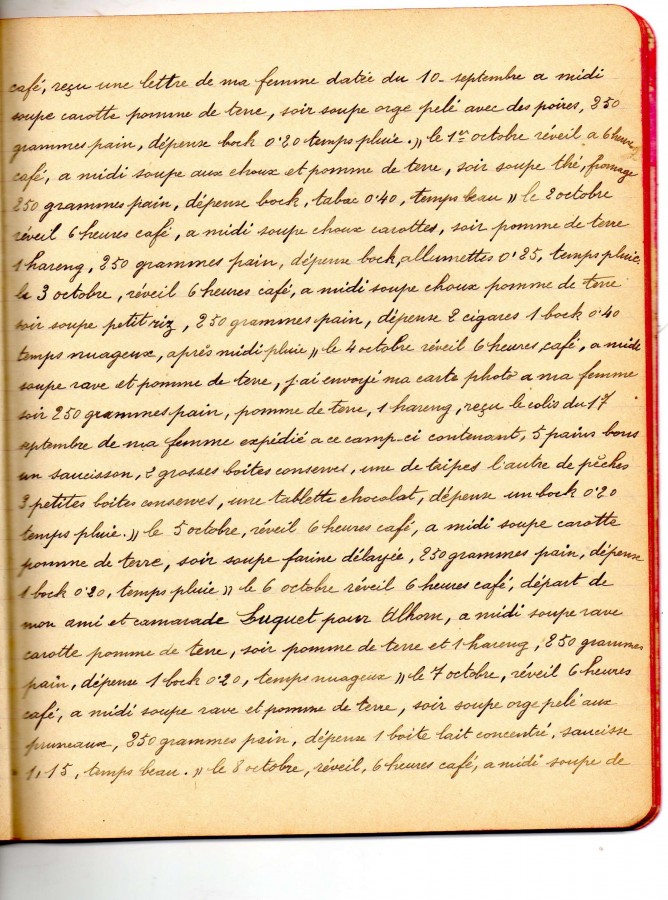 café, reçu une lettre de ma femme datée du 10 - septembre a midi
soupe carotte pomme de terre, soir soupe orge pelé avec des poires, 250
grammes pain, dépense bock 0'20 temps pluie. „ le 1er octobre réveil a 6 heures
café, a midi soupe aux choux et pomme de terre, soir soupe thé, fromage
250 grammes pain, dépense bock, tabac 0'40, temps beau „ le 2 octobre
réveil 6 heures café, a midi soupe choux carottes, soir pomme de terre
1 hareng, 250 grammes pain, dépense bock, allumettes 0'25, temps pluie.
le 3 octobre, réveil 6 heures café, a midi soupe choux pomme de terre
soir soupe petit riz, 250 grammes pain, dépense 2 cigares 1 bock 0'40
temps nuageux, après midi pluie „ le 4 octobre réveil 6 heures, café, a midi
soupe rave et pomme de terre, j'ai envoyé ma carte photo a ma femme
soir 250 grammes pain, pomme de terre, 1 hareng, reçu le colis du 17
septembre de ma femme expédié a ce camp-ci contenant, 5 pains bons
un saucisson, 2 grosses boites conserves, une de tripes l'autre de pêches
3 petites boites conserves, une tablette chocolat, dépense un bock 0'20
temps pluie. „ le 5 octobre, réveil 6 heures café, a midi soupe carotte
pomme de terre, soir soupe farine délayée, 250 grammes pain, dépense
1 bock 0'20, temps pluie „ le 6 octobre réveil 6 heures café, départ de
mon ami et camarade Luquet pour Alhorn, a midi soupe rave
carotte pomme de terre, soir pomme de terre et 1 hareng, 250 grammes
pain, dépense 1 bock 0'20, temps nuageux „ le 7 octobre, réveil 6 heures
café, a midi soupe rave et pomme de terre, soir soupe orge pelé aux
pruneaux, 250 grammes pain, dépense 1 boite lait concentré, saucisse
1,15, temps beau. „ le 8 octobre, réveil, 6 heures café, a midi soupe de